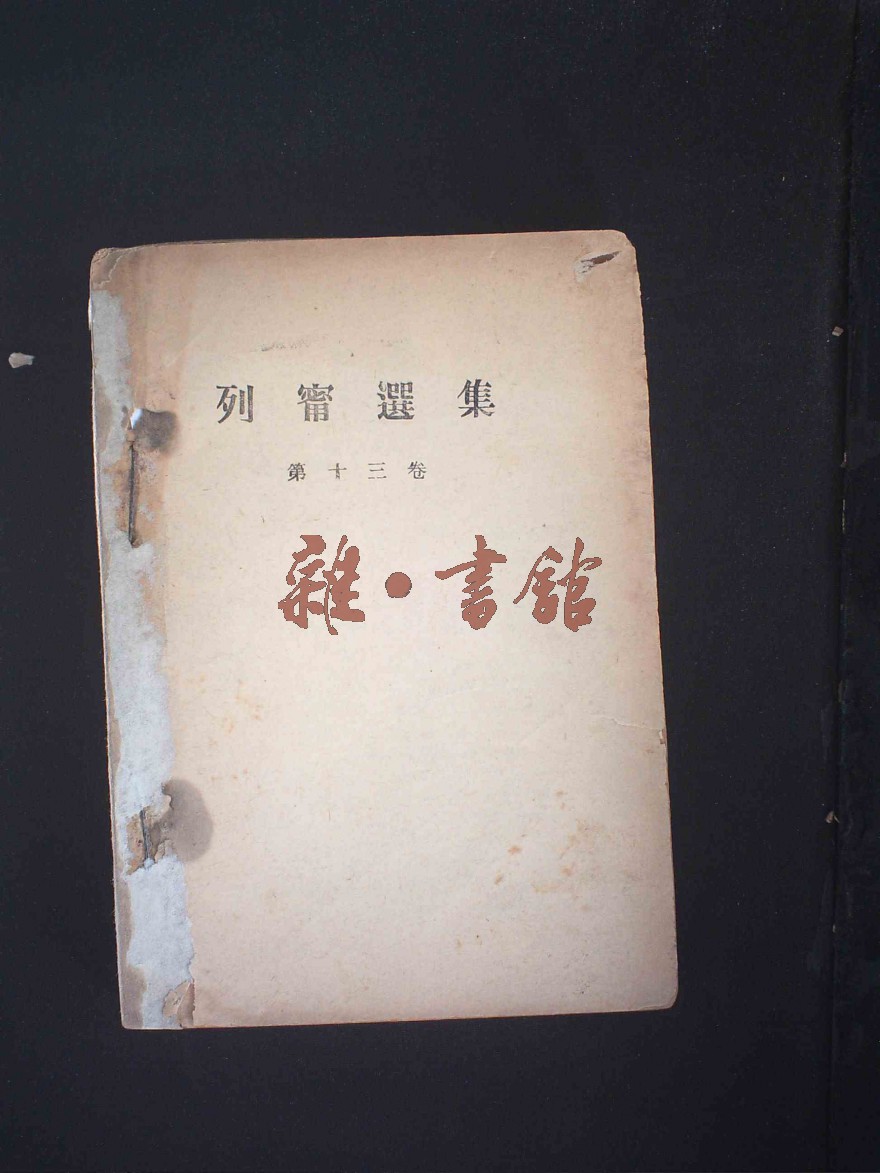 列甯選集
第十三卷
雜·書館